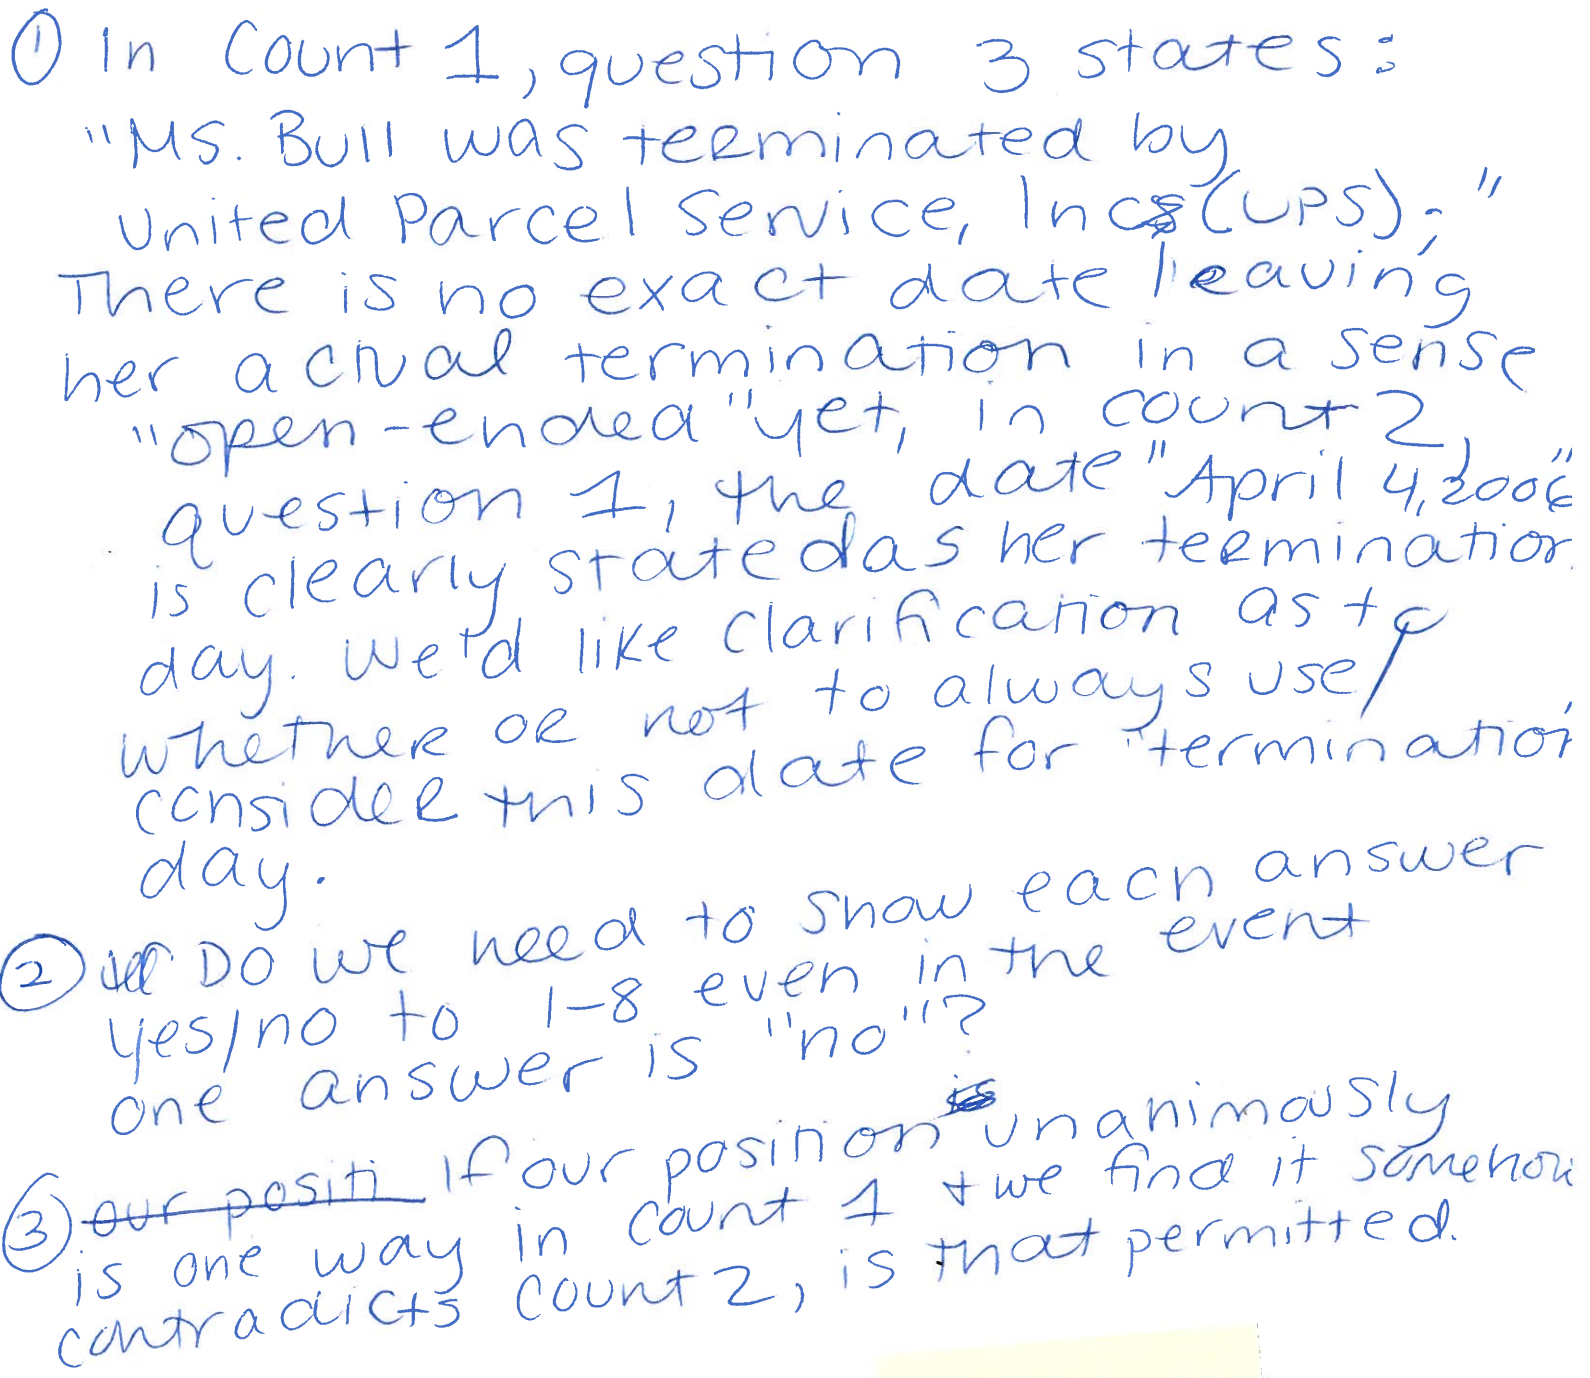 ① In Count 1, question 3 states:
"Ms. Bull was terminated by
United Parcel Service, Inc. (UPS);"
There is no exact date leaving
her actual termination in a sense
"open-ended" yet, in count 2,
question 1, the date "April 4, 2006"
is clearly stated as her termination
day. We'd like clarification as to
whether or not to always use/
consider this date for "termination"
day.
② Do we need to show each answer
yes/no to 1-8 even in the event
one answer is "no"?
③ our positi If our position unanimously
is one way in count 1 + we find it somehow
contradicts count 2, is that permitted.